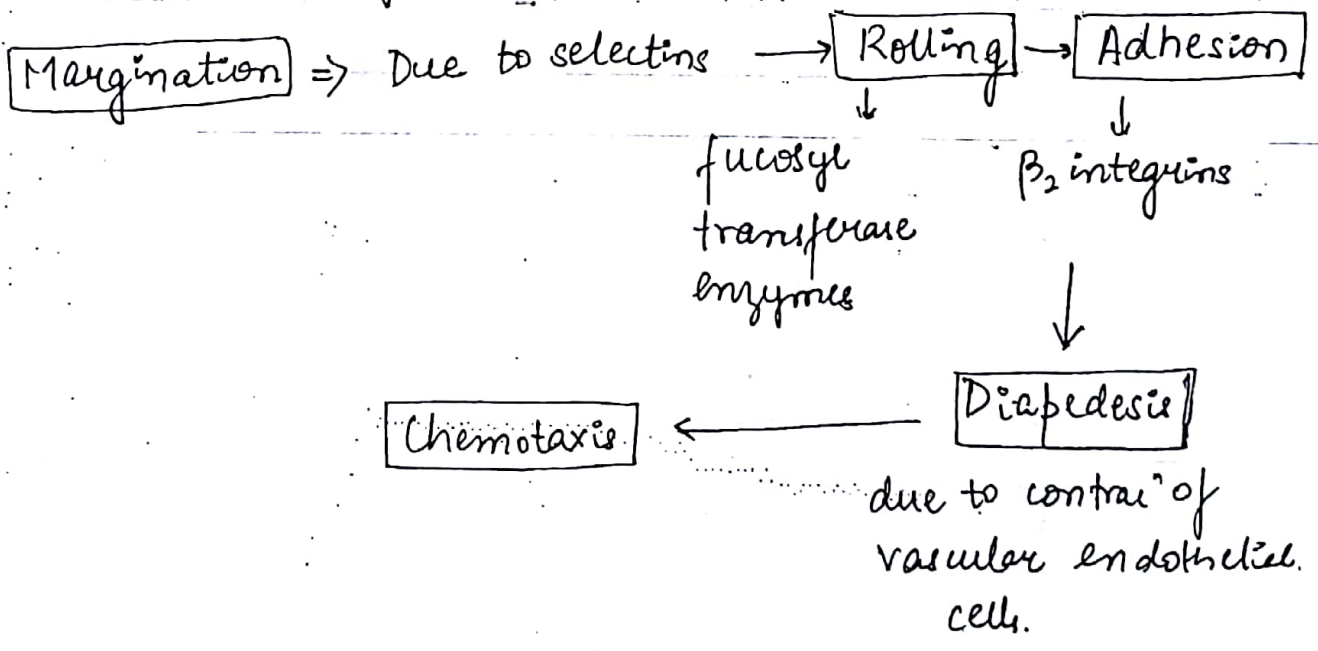 Margination ⇒ Due to selectins → Rolling → Adhesion
↓ ↓
fucosyl
transferase
enzymes
β₂ integrins
↓
Diapedesis
due to contracⁿ of
vascular endothelial.
cells.
← Chemotaxis